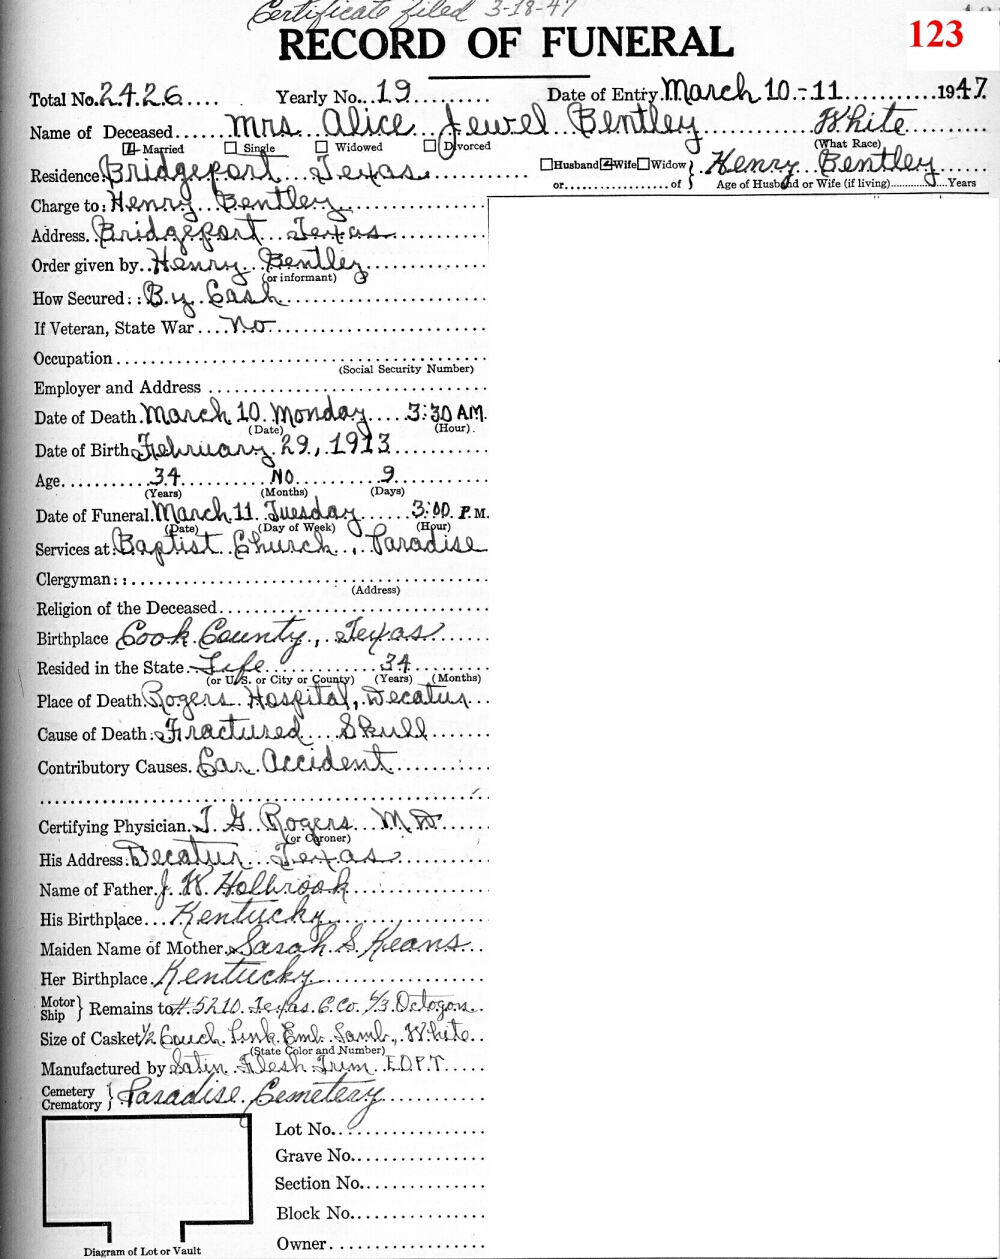 Certificate filed 3-18-47
123
RECORD OF FUNERAL
Total No. 2426 Yearly No. 19 Date of Entry March 10-11 1947
Name of Deceased Mrs. Alice Jewel Bentley White
Married Single Widowed Divorced (What Race)
Residence Bridgeport Texas Husband Wife Widow } Henry Bentley
or of Age of Husband or Wife (if living) Years
Charge to: Henry Bentley
Address. Bridgeport Texas
Order given by Henry Bentley
(or informant)
How Secured: By Cash
If Veteran, State War No
Occupation
(Social Security Number)
Employer and Address
Date of Death March 10 Monday 3:30 AM.
(Date) (Hour)
Date of Birth February 29, 1913
Age 34 No 9
(Years) (Months) (Days)
Date of Funeral March 11 Tuesday 3:00 P.M.
(Date) (Day of Week) (Hour)
Services at Baptist Church, Paradise
Clergyman:
(Address)
Religion of the Deceased
Birthplace Cook County, Texas
Resided in the State Life 34
(or U.S. or City or County) (Years) (Months)
Place of Death Rogers Hospital, Decatur
Cause of Death: Fractured Skull
Contributory Causes. Car Accident
Certifying Physician. T G Rogers MD
(or Coroner)
His Address: Decatur Texas
Name of Father J. W. Holbrook
His Birthplace Kentucky
Maiden Name of Mother Sarah S. Keans
Her Birthplace Kentucky
Motor Ship } Remains to #5210 Texas C. Co. 6/3 Octogon
Size of Casket 1/2 Couch Pink Emb. Lamb., White
(State Color and Number)
Manufactured by Satin Flesh Trim E.D.P.T.
Cemetery Crematory } Paradise Cemetery
Lot No.
Grave No.
Section No.
Block No.
Owner
Diagram of Lot or Vault